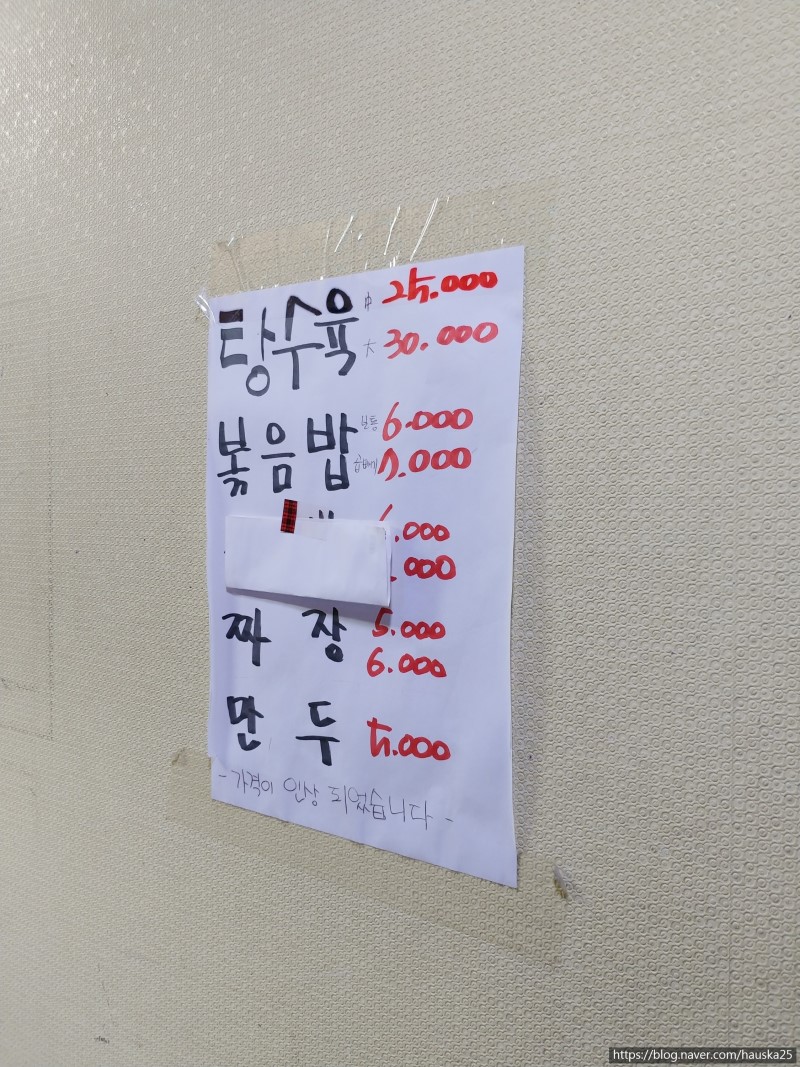 탕수육 中 25.000
大 30.000
볶음밥 보통 6.000
곱배기 7.000
.000
.000
짜장 5.000
6.000
만두 5.000
- 가격이 인상 되었습니다 -
https://blog.naver.com/hauska25